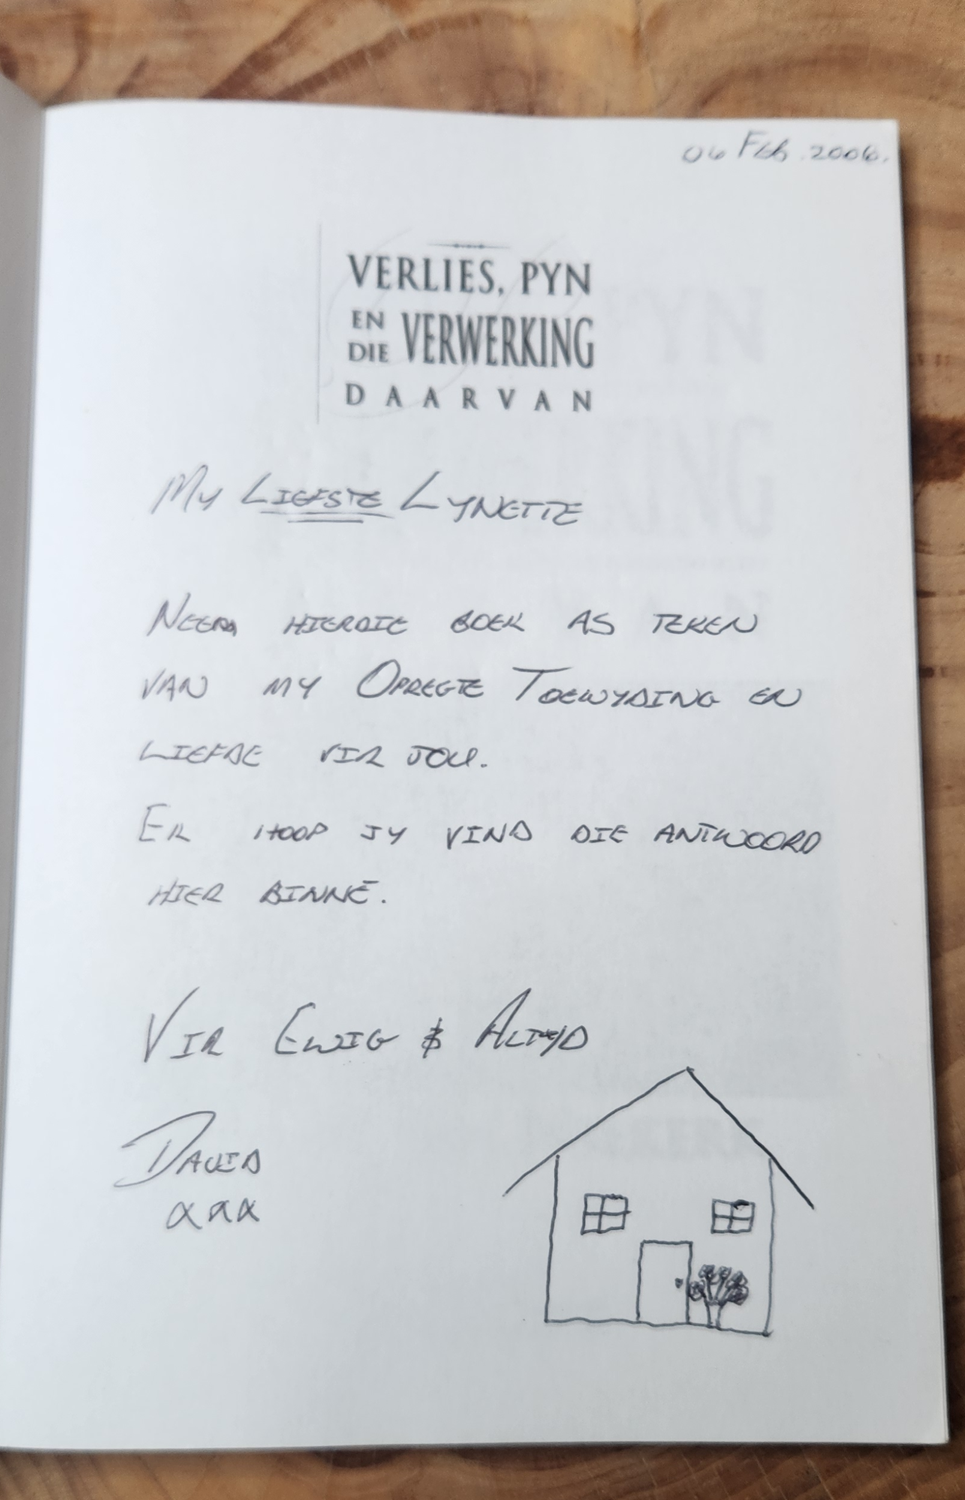 06 Feb. 2006.
VERLIES, PYN
EN DIE VERWERKING
DAARVAN
My LIEFSTE LYNETTE
NEEM HIERDIE BOEK AS TEKEN
VAN MY OPREGTE TOEWYDING EN
LIEFDE VIR JOU.
EK HOOP JY VIND DIE ANTWOORD
HIER BINNE.
VIR EWIG & ALTYD
DAVID
xxx